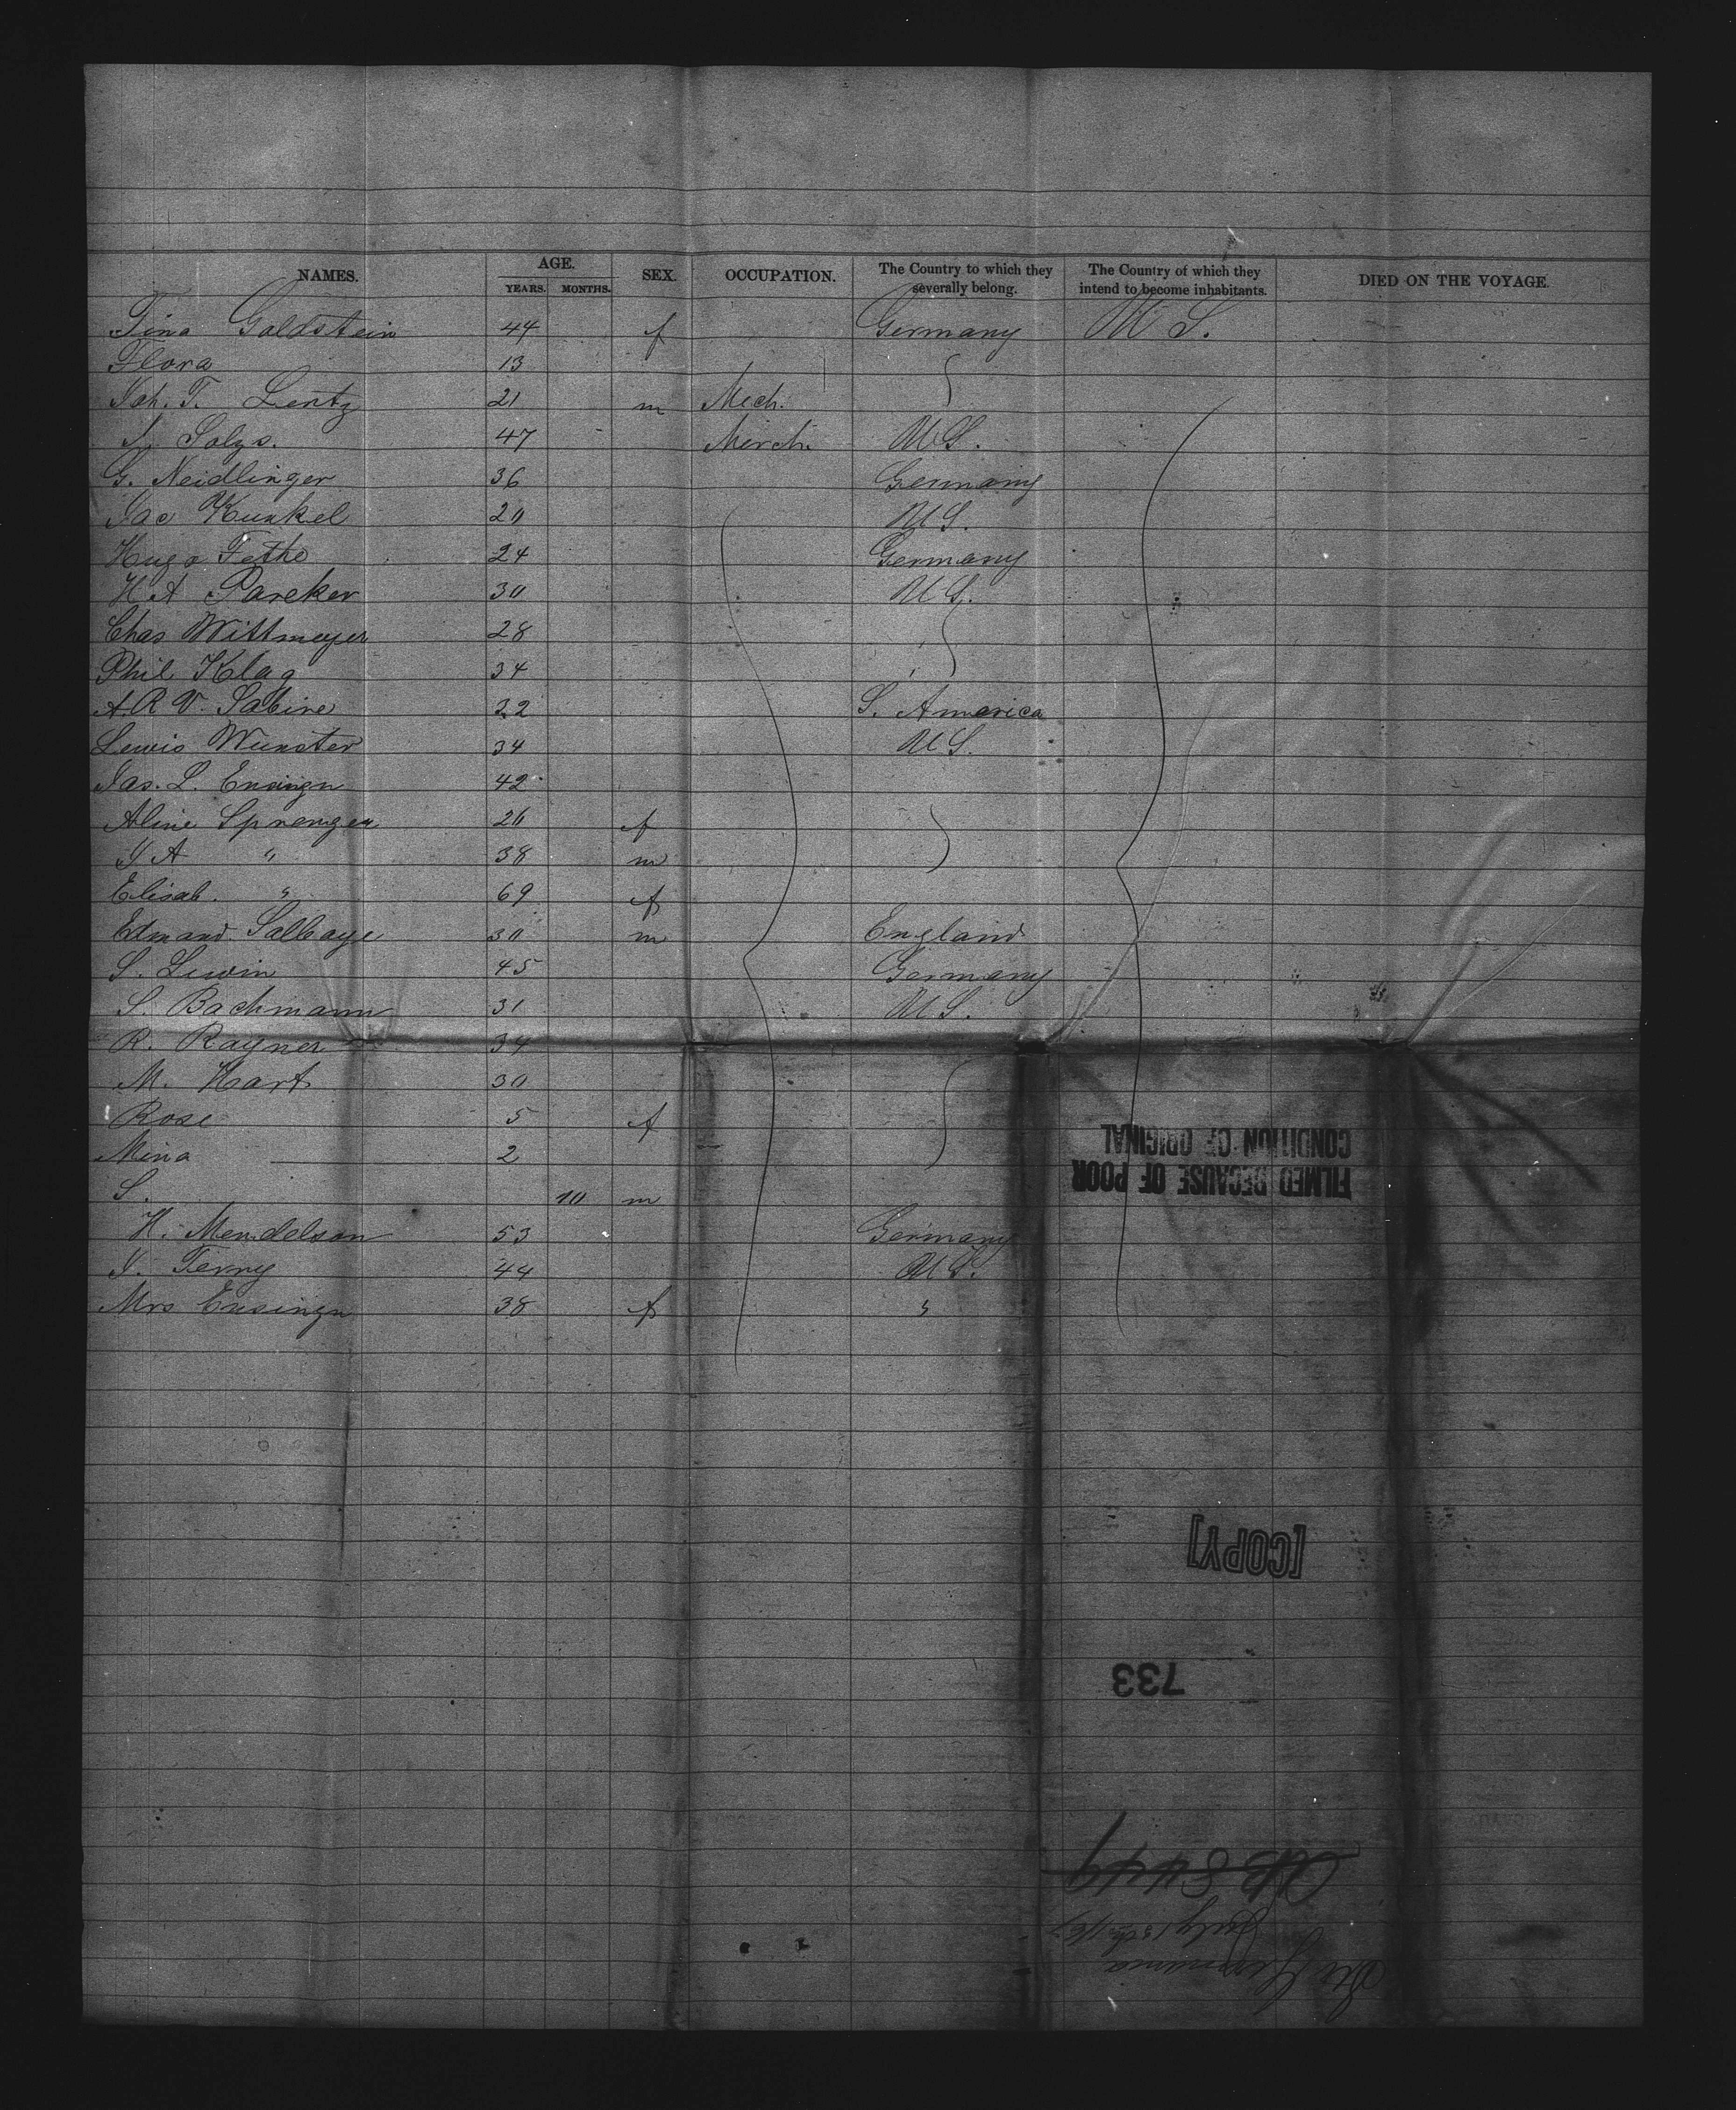 NAMES. AGE. YEARS. MONTHS. SEX. OCCUPATION. The Country to which they severally belong. The Country of which they intend to become inhabitants. DIED ON THE VOYAGE.
Tina Goldstein 44 f Germany U S.
Flora 13
Joh. T. Lentz 21 m Mech.
47 Merch. U S.
G. Neidlinger 36 Germany
Jac Kunkel 20 U S.
Hugo Fethe 24 Germany
H A Parcker 30 U S.
Chas Wittmeyer 28
Phil Klag 34
A. R. V. Sabine 22 S. America
Lewis Wunster 34 U S.
Jas. L. Ensingn 42
Aline Sprenger 26 f
J A " 38 m
Elisab. " 69 f
Edmand 30 m England
S. Lewin 45 Germany
S. Bachmann 31 U S.
R. Rayner 34
M. Hart 30
Rose 5 f
Mina 2
S. 10 m
H. Mendelson 53 Germany
J. Terny 44 U S.
Mrs Ensingn 38 f "
FILMED BECAUSE OF POOR
CONDITION OF ORIGINAL
[COPY]
733
8449
July 15th
Germania